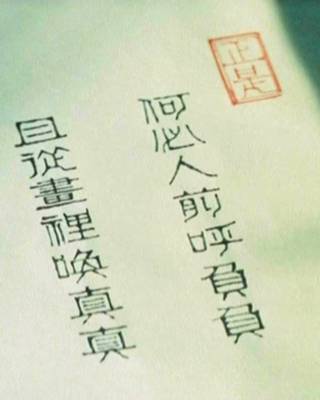 正是
何必人前呼負負
且從畫裡喚真真